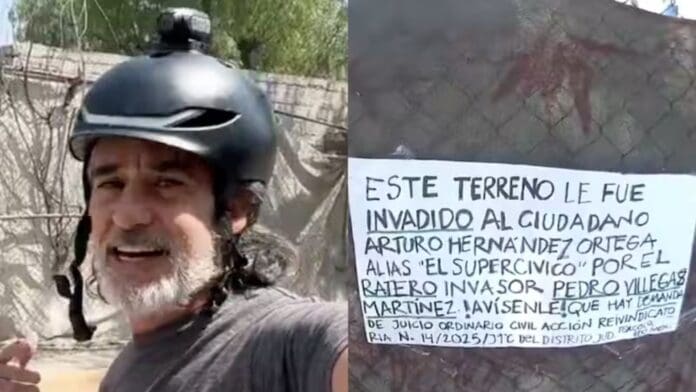 ESTE TERRENO LE FUE
INVADIDO AL CIUDADANO
ARTURO HERNÁNDEZ ORTEGA
ALIAS "EL SUPERCIVICO" POR EL
RATERO INVASOR PEDRO VILLEGAS
MARTÍNEZ. ¡AVÍSENLE! QUE HAY DEMANDA
DE JUICIO ORDINARIO CIVIL ACCIÓN REIVINDICATO
RIA N. 14/2025/J1°C DEL DISTRITO JUD.